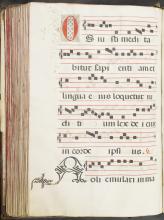 Os iusti medita
bitur sapi enti am et
lingua eius loquetur iu
di ti um lex de i eius
in corde ipsi us
Noli emulari in ma